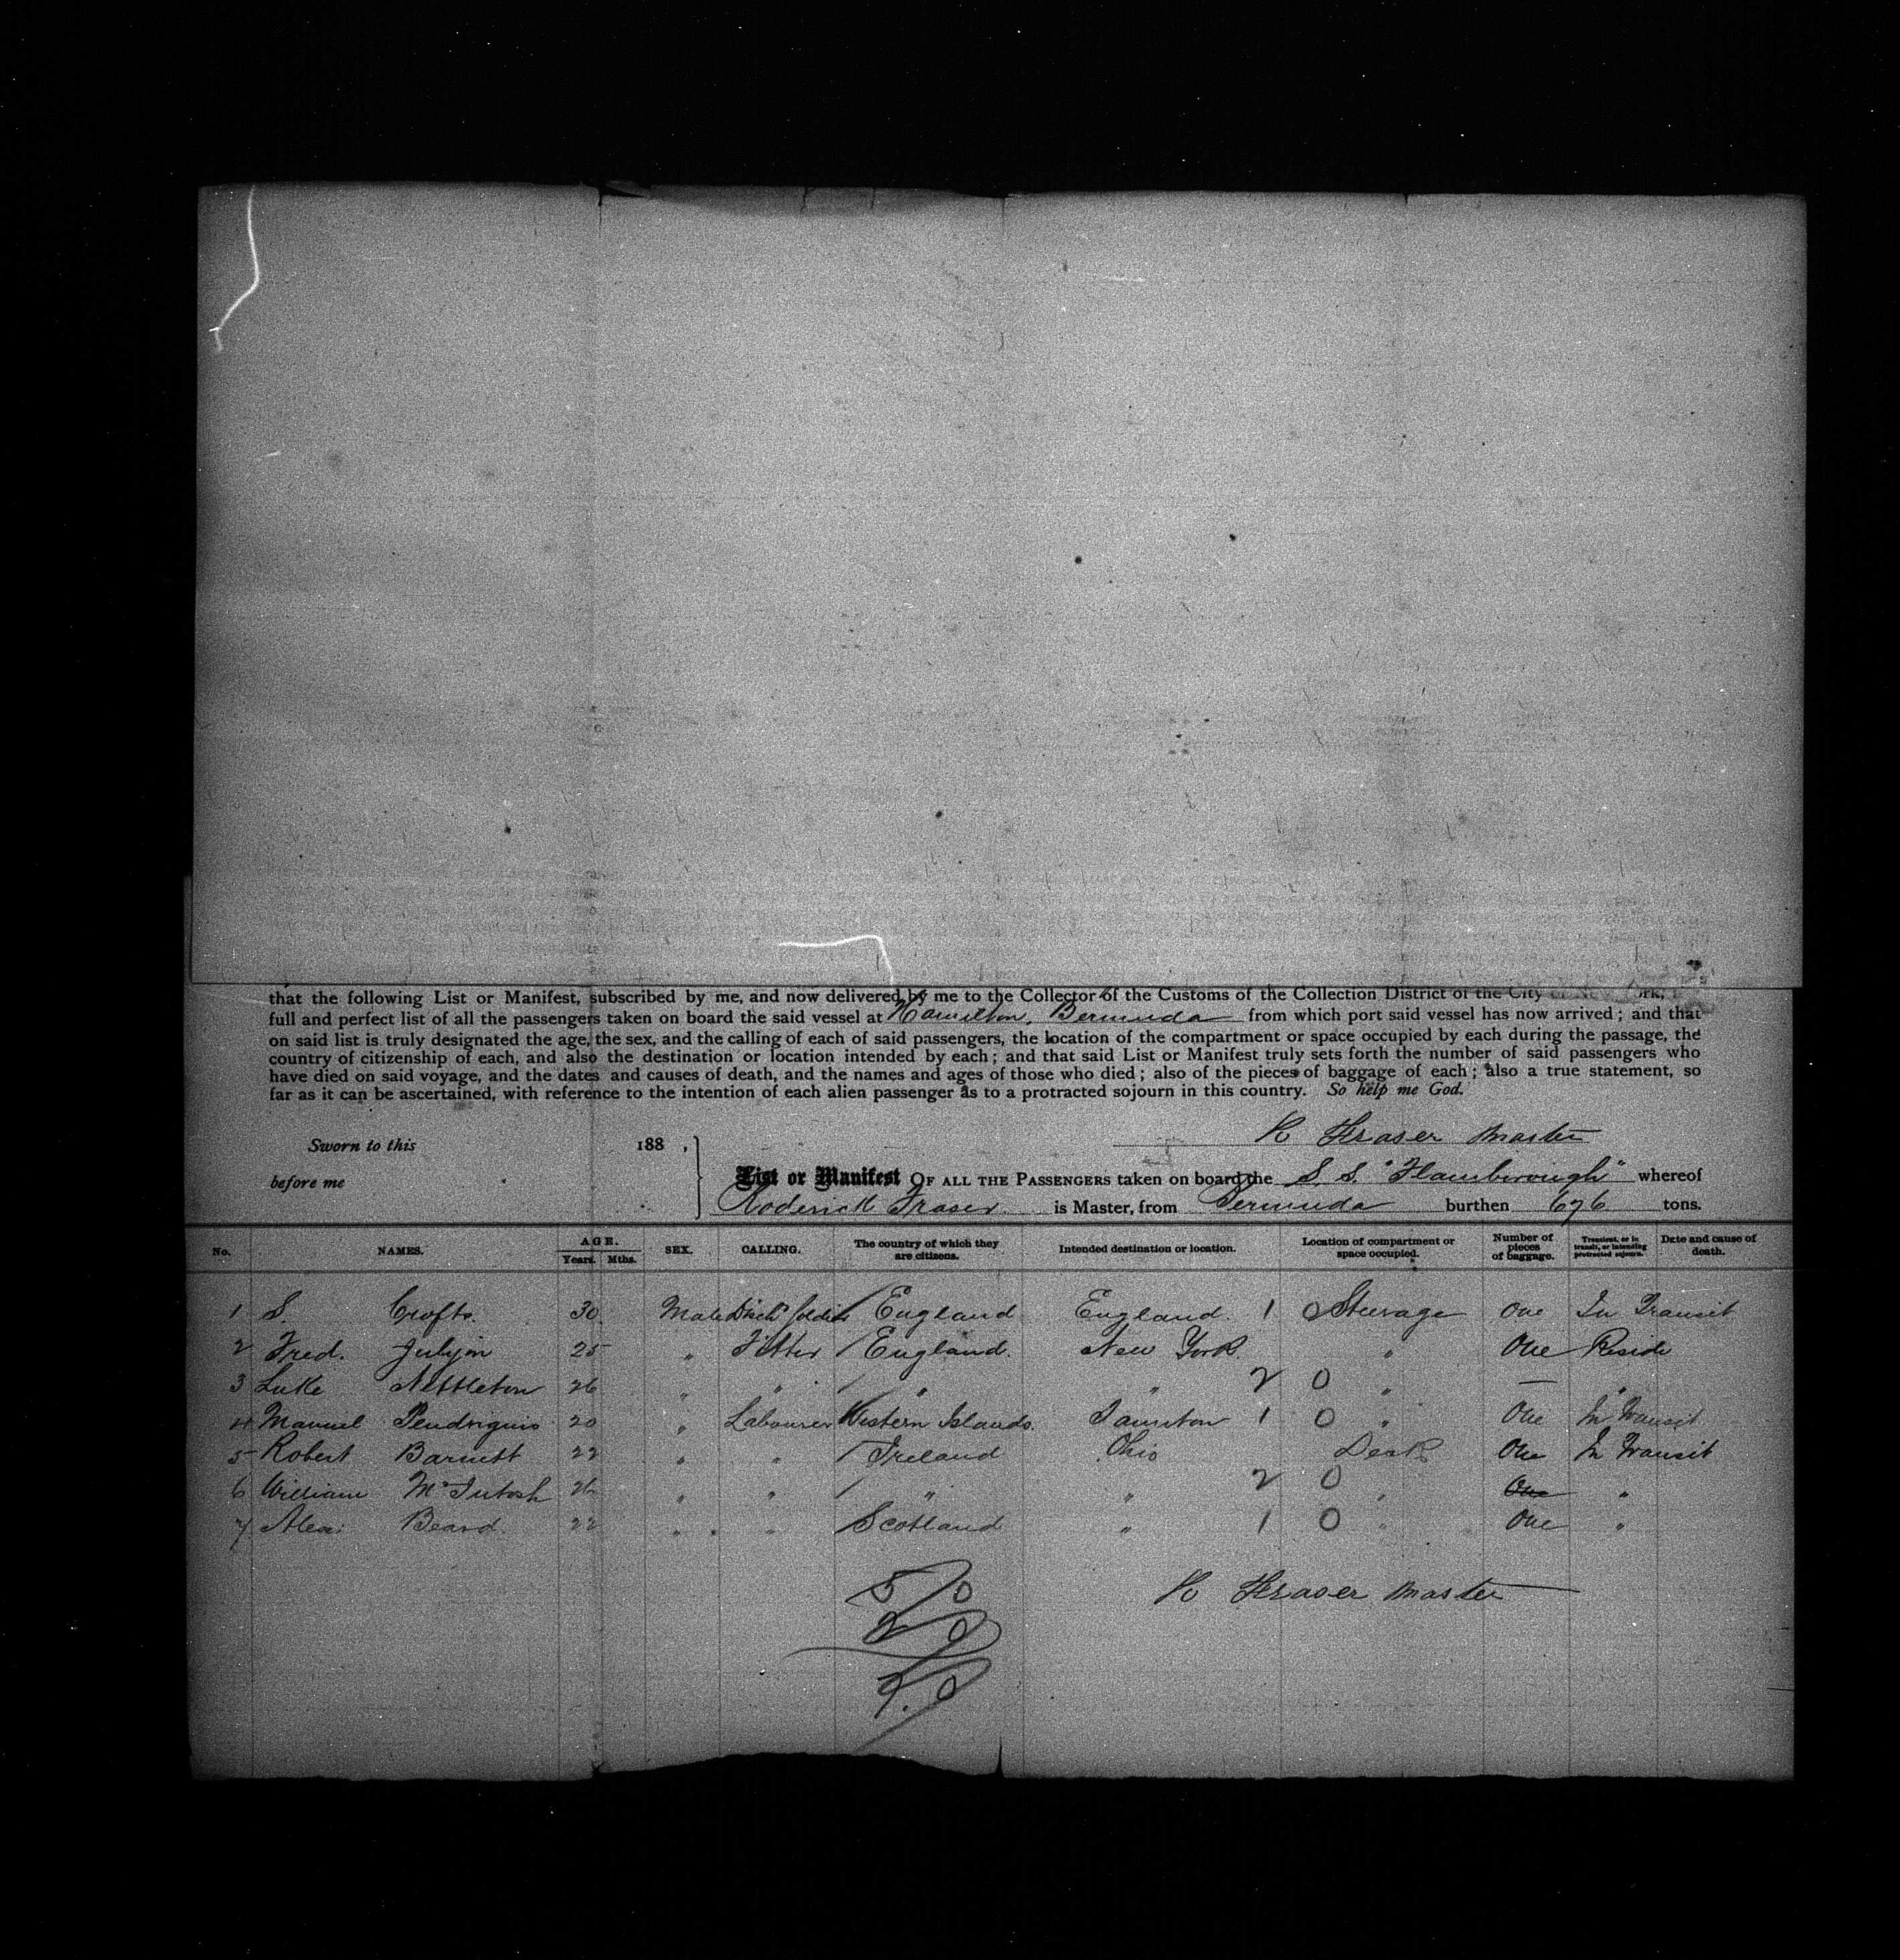 that the following List or Manifest, subscribed by me, and now delivered by me to the Collector of the Customs of the Collection District of the City of New York,
full and perfect list of all the passengers taken on board the said vessel at Hamilton, Bermuda from which port said vessel has now arrived; and that
on said list is truly designated the age, the sex, and the calling of each of said passengers, the location of the compartment or space occupied by each during the passage, the
country of citizenship of each, and also the destination or location intended by each; and that said List or Manifest truly sets forth the number of said passengers who
have died on said voyage, and the dates and causes of death, and the names and ages of those who died; also of the pieces of baggage of each; also a true statement, so
far as it can be ascertained, with reference to the intention of each alien passenger as to a protracted sojourn in this country. So help me God.
R Fraser Master
Sworn to this 188 ,
before me
List or Manifest OF ALL THE PASSENGERS taken on board the S. S. "Flamborough" whereof
Roderick Fraser is Master, from Bermuda burthen 676 tons.
No. NAMES. AGE. Years. Mths. SEX. CALLING. The country of which they are citizens. Intended destination or location. Location of compartment or space occupied. Number of pieces of baggage. Transient, or in transit, or intending protracted sojourn. Date and cause of death.
1 S. Crofts. 30 Male Disch Soldier England England. 1 Steerage One In Transit
2 Fred. 25 " Fitter England. New York. " One Reside
3 Luke Nettleton 26 " " " " 2 0 " — "
4 Manuel 20 " Labourer Western Islands. 1 0 " One In Transit
5 Robert Barnett 22 " " Ireland Ohio Deck One In Transit
6 William McIntosh 26 " " " " 2 0 " One "
7 Alex: Beard. 22 " " Scotland " 1 0 " One "
5 0
R Fraser Master
2 0
7. 0